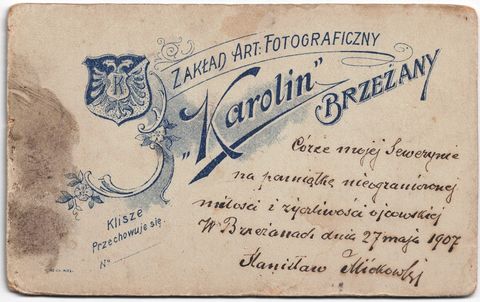 ZAKŁAD ART: FOTOGRAFICZNY
K
„Karolin”
BRZEŻANY
Córce mojej Sewerynie
na pamiątkę nieograniczonej
miłości i życzliwości ojcowskiej
W Brzeżanach dnia 27 maja 1907
Stanisław
Klisze
Przechowuje się.
No